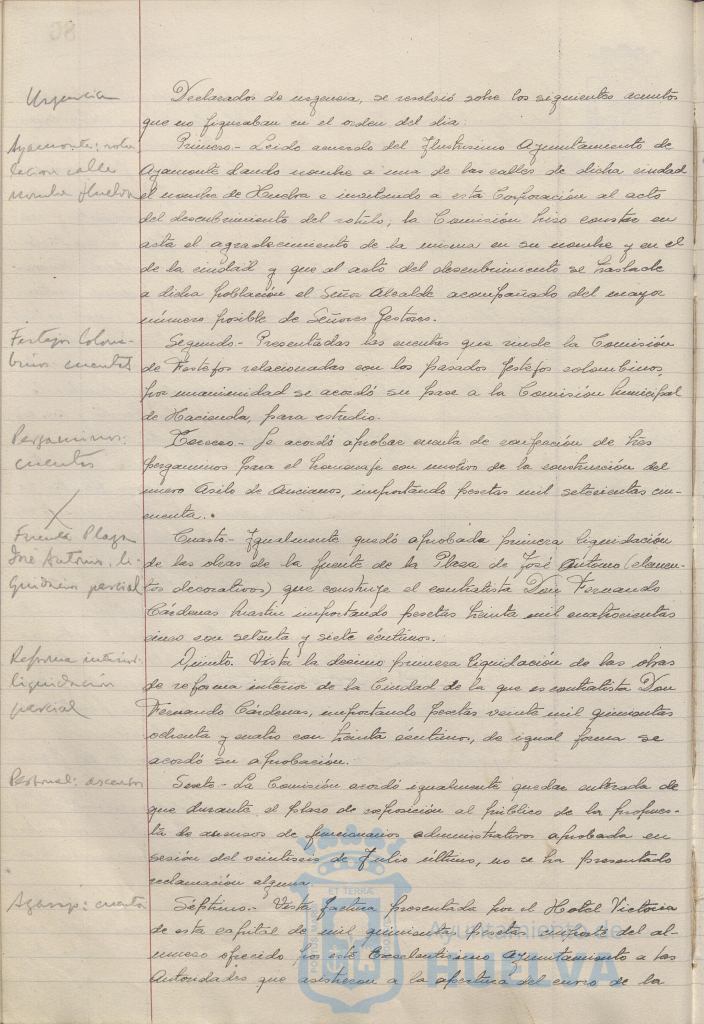 Urgencia
Declarados de urgencia, se resolvió sobre los siguientes asuntos
que no figuraban en el orden del día:
Ayamonte: rotu-
lación calle
nombre Huelva
Primero.- Leido acuerdo del Ilustrísimo Ayuntamiento de
Ayamonte dando nombre a una de las calles de dicha ciudad
el nombre de Huelva e invitando a esta Corporación al acto
del descubrimiento del rótulo, la Comisión hizo constar en
acta el agradecimiento de la misma en su nombre y en el
de la ciudad y que al acto del descubrimiento se traslade
a dicha población el Señor Alcalde acompañado del mayor
número posible de Señores Gestores.
Festejos Colom-
binos cuentas
Segundo.- Presentadas las cuentas que rinde la Comisión
de Festejos relacionadas con los pasados festejos colombinos,
por unanimidad se acordó su pase a la Comisión Municipal
de Hacienda, para estudio.
Pergaminos:
cuentas
Tercero.- Se acordó aprobar cuenta de confección de tres
pergaminos para el homenaje con motivo de la construcción del
nuevo Asilo de Ancianos, importando pesetas mil setecientas cin-
cuenta.
X
Fuente Plaza
José Antonio, li-
quidación parcial
Cuarto.- Igualmente quedó aprobada primera liquidación
de las obras de la fuente de la Plaza de José Antonio (elemen-
tos decorativos) que construye el contratista Don Fernando
Cárdenas Martín importando pesetas treinta mil cuatrocientas
cinco con setenta y siete céntimos.
Reforma interior:
liquidación
parcial
Quinto. Vista la decimo primera liquidación de las obras
de reforma interior de la Ciudad de la que es contratista Don
Fernando Cárdenas, importando pesetas veinte mil quinientas
ochenta y cuatro con treinta céntimos, de igual forma se
acordó su aprobación.
Personal: ascensos
Sexto.- La Comisión acordó igualmente quedar enterada de
que durante el plazo de exposición al público de la propues-
ta de ascensos de funcionarios administrativos aprobada en
sesión del veintiseis de Julio último, no se ha presentado
reclamación alguna.
Agasajo: cuenta
Séptimo.- Vista factura presentada por el Hotel Victoria
de esta capital de mil quinientas pesetas, importe del al-
muerzo ofrecido por este Excelentísimo Ayuntamiento a las
Autoridades que asistieron a la apertura del curso de la
Ayuntamiento de
HUELVA